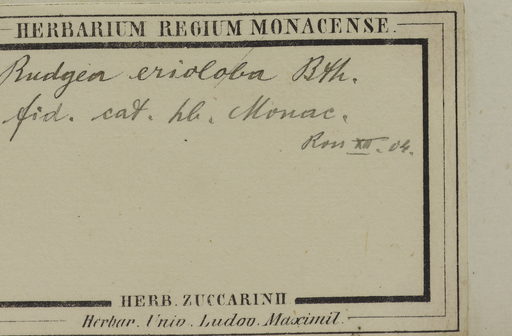 HERBARIUM REGIUM MONACENSE.
Rudgea erioloba Bth.
fid. cat. hb. Monac.
Ross XII. 04.
HERB. ZUCCARINII
Herbar. Univ. Ludov. Maximil.